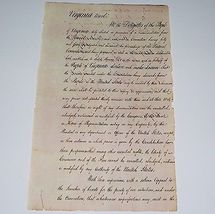 Virginia towit:
We the Delegates of the People
of Virginia duly elected in pursuance of a recommendation from
the General Assembly and now met in Convention having fully
and freely investigated and discussed the proceedings of the Federal
Convention and being prepared as well as the most mature deliberation
hath enabled us to decide thereon Do in the name and in behalf of the
People of Virginia declare and make known that
the powers granted under the Constitution being derived from the
People of the United States may be resumed by them whensoever
the same shall be perverted to their injury or oppression and that
every power not granted thereby remains with them and at their will:
that therefore no right of any denomination can be cancelled
abridged restrained or modified by the Congress by the Senate
or House of Representatives acting in any capacity by the
President or any department or Officer of the United States except
in those instances in which power is given by the Constitution for
those purposes: that among other essential rights the liberty of
Conscience and of the Press cannot be cancelled abridged restrained
or modified by any authority of the United States.
With these impressions with a solemn appeal to
the Searcher of hearts for the purity of our intentions and under
the Conviction that whatsoever imperfections may exist in the